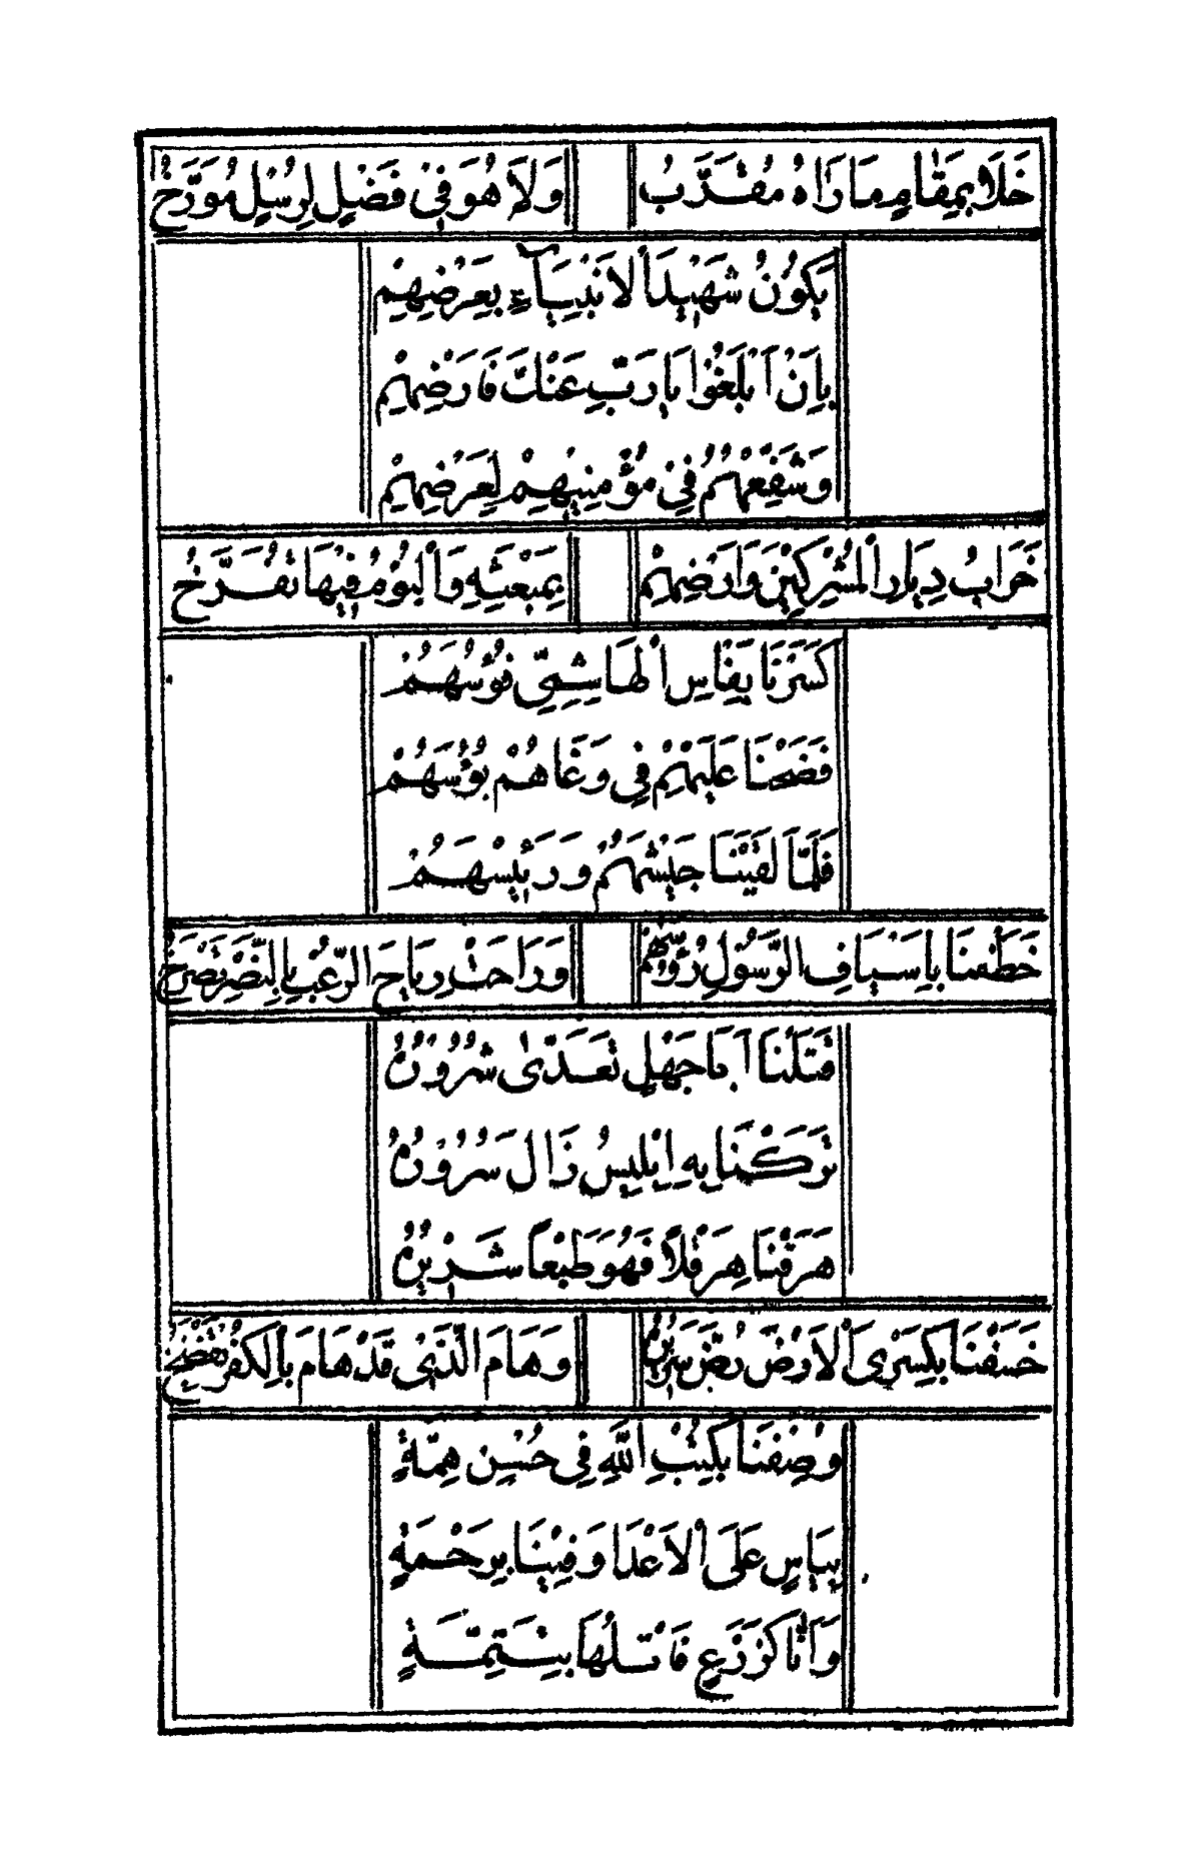 خَلَا بِمَقَامٍ مَا رَاٰهُ مُقَرَّبُ وَلَا هُوَ فِيْ فَضْلٍ لِرُسُلٍ مُوَرَّخُ
يَكُوْنُ شَهِيْدَ الْاَنْبِيَآءِ بِعَرْضِهِمْ
بِاَنْ اَبْلَغُوْا يَا رَبِّ عَنْكَ فَارْضِهِمْ
وَشَفِّعْهُمُ فِيْ مُؤْمِنِيْهِمْ لِعِرْضِهِمْ
خَرَابُ دِيَارِ الْمُشْرِكِيْنَ وَاَرْضِهِمْ بِمَبْعَثِهِ وَالْبُوْمُ فِيْهَا تُفَرِّخُ
كَسَرْنَا بِفَاسِ الْهَاشِمِيِّ فُؤُسَهُمْ
فَضَحْنَا عَلَيْهِمْ فِي وَغَاهُمْ بُؤُسَهُمْ
فَلَمَّا لَقِيْنَا جَيْشَهُمْ وَرَئِيْسَهُمْ
خَطَفْنَا بِاَسْيَافِ الرَّسُوْلِ رُؤُسَهُمْ وَرَاحَتْ رِيَاحُ الرُّعْبِ بِالنَّصْرِ تَصْرَخُ
قَتَلْنَا اَبَا جَهْلٍ تَعَدّٰى شُرُوْرُهُ
تَرَكْنَا بِهِ اِبْلِيْسُ زَالَ سُرُوْرُهُ
هَرَقْنَا هِرَقْلًا فَهُوَ طَبْعًا شَرِيْرُهُ
خَسَفْنَا بِكِسْرٰى الْاَرْضَ رُضَّ سَرِيْرُهُ وَهَامَ الَّذِيْ قَدْ هَامَ بِالْكُفْرِ
وُصِفْنَا بِكُتْبِ اللّٰهِ فِي حُسْنِ هِمَّةٍ
بِبَاسٍ عَلَى الْاَعْدَا وَفِيْنَا بِرَحْمَةٍ
وَاَنَّا كَزَرْعٍ فَاتْلُهَا بِتَتِمَّةٍ